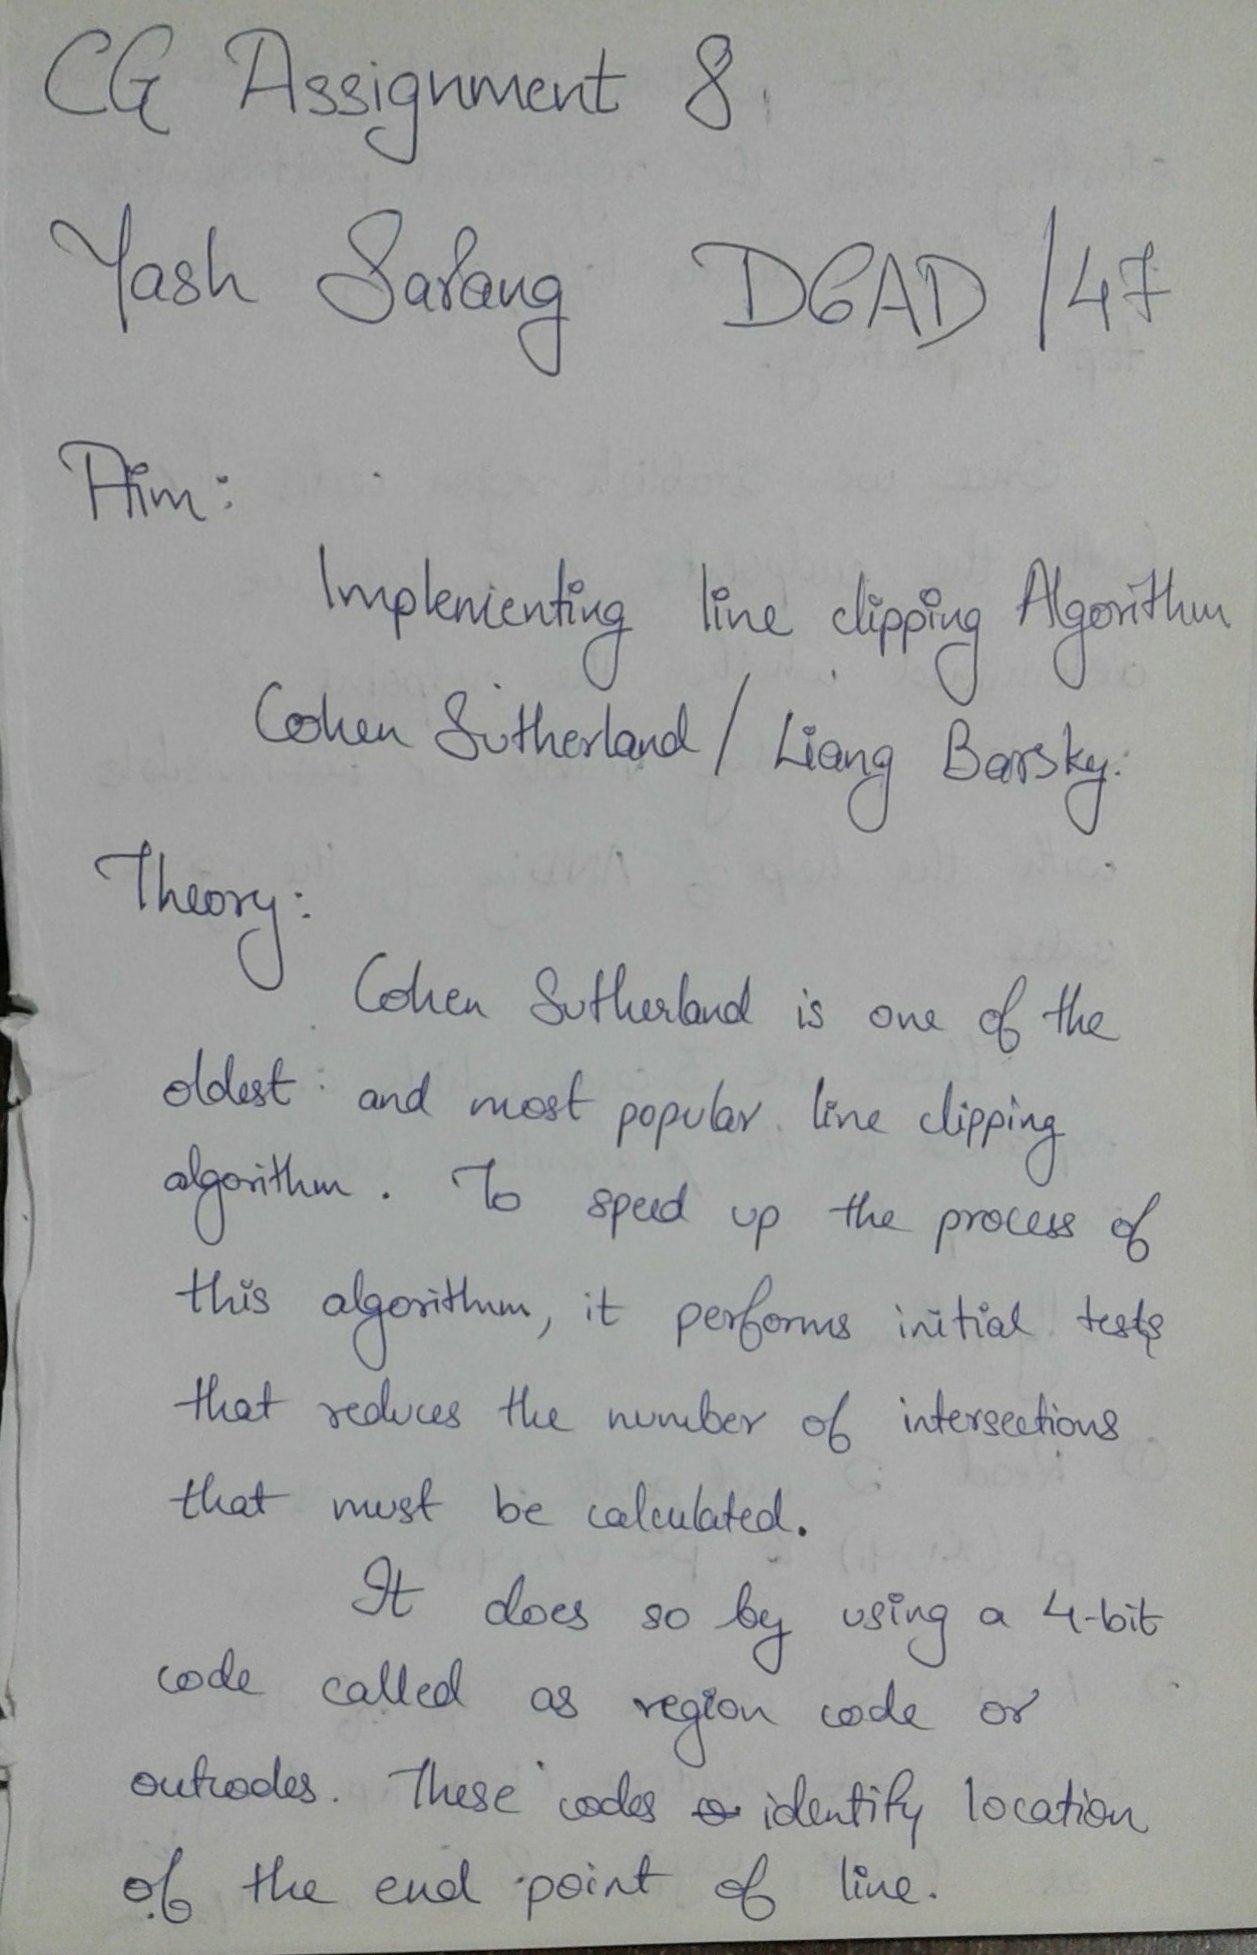 CG Assignment 8.
Yash Sarang D6AD /47
Aim:
Implementing line clipping Algorithm
Cohen Sutherland / Liang Barsky.
Theory:
Cohen Sutherland is one of the
oldest and most popular line clipping
algorithm. To speed up the process of
this algorithm, it performs initial tests
that reduces the number of intersections
that must be calculated.
It does so by using a 4-bit
code called as region code or
outcodes. These codes identify location
of the end point of line.